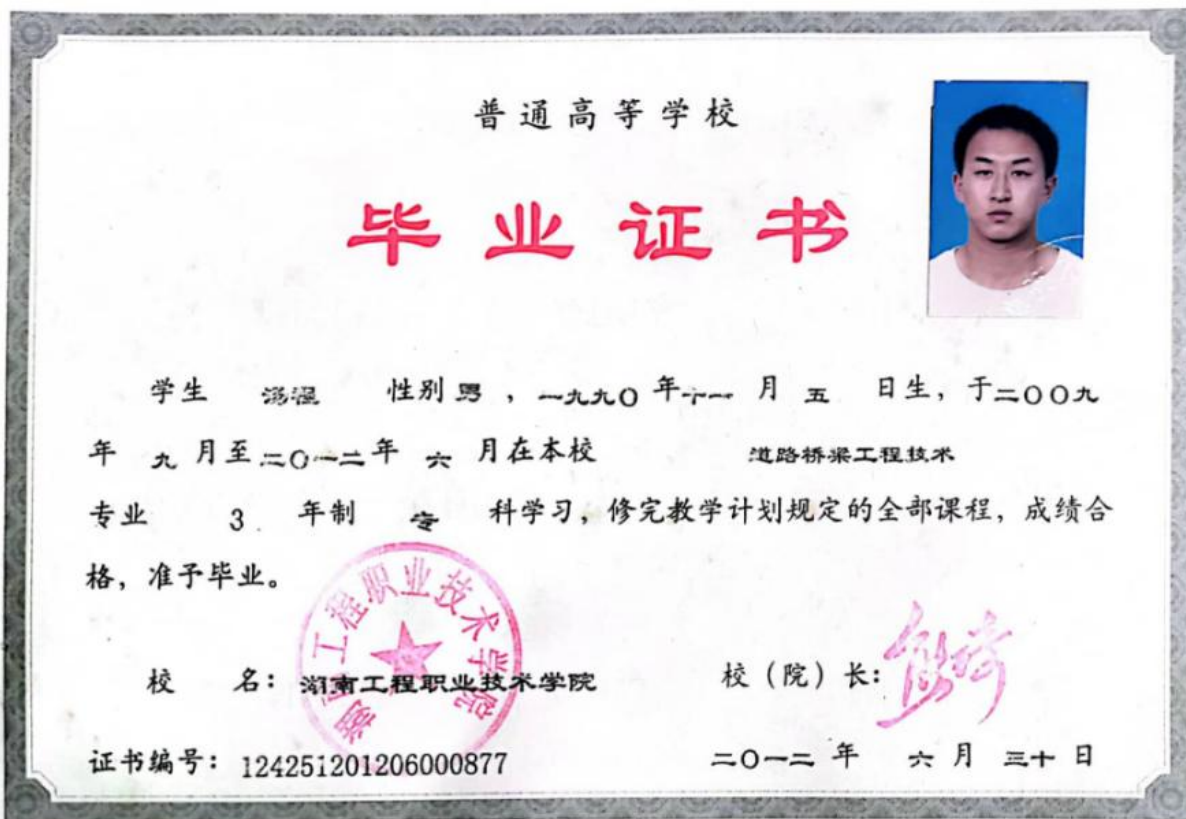 普通高等学校
毕业证书
学生 汤强 性别 男 ，一九九〇 年 十一 月 五 日生，于二〇〇九
年 九 月至二〇一二年 六 月在本校 道路桥梁工程技术
专业 3 年制 专 科学习，修完教学计划规定的全部课程，成绩合
格，准予毕业。
湖南工程职业技术学院
校 名：湖南工程职业技术学院 校（院）长：
证书编号：124251201206000877 二〇一二 年 六 月 三十 日